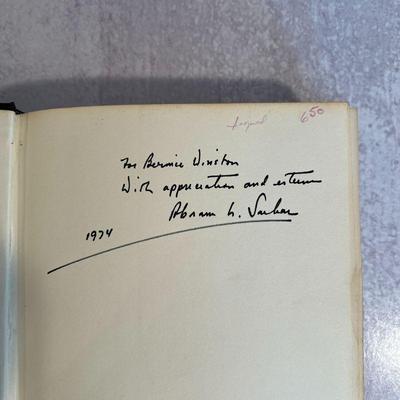 Signed 650
For Bernie Winston
With appreciation and esteem
Abram L. Sachar
1974